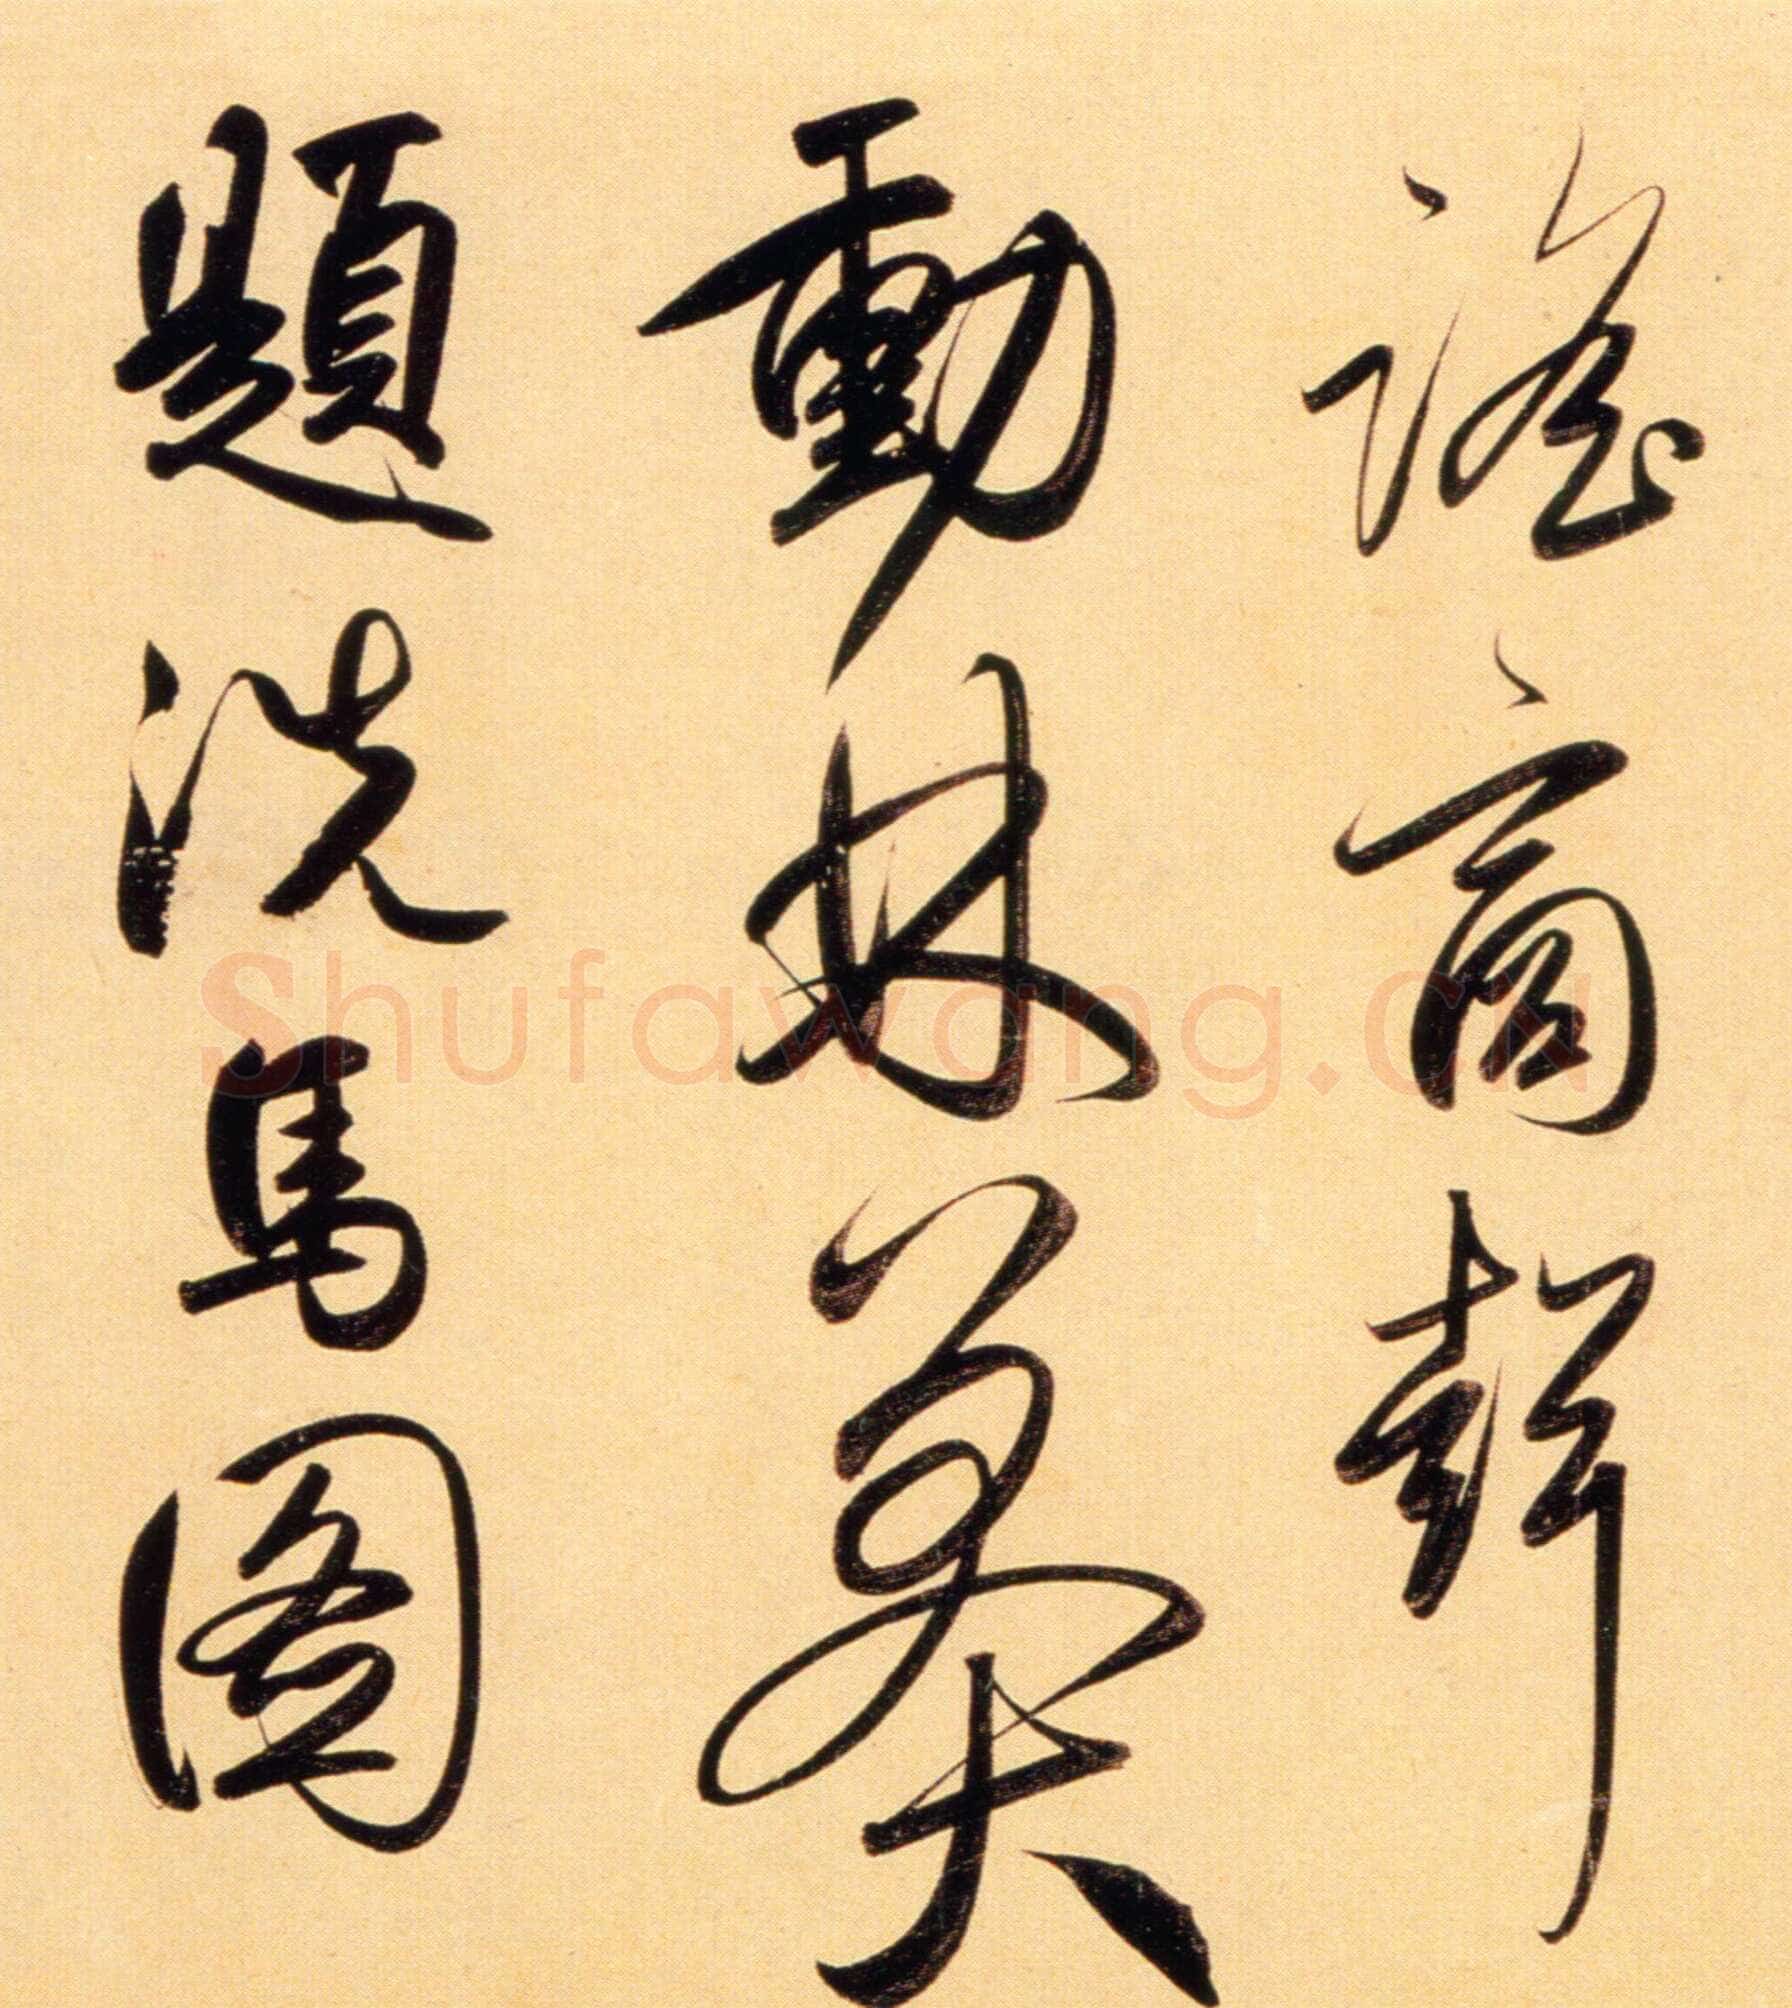 謠商聲
動林莽
題洗馬圖
Shufawang.cn